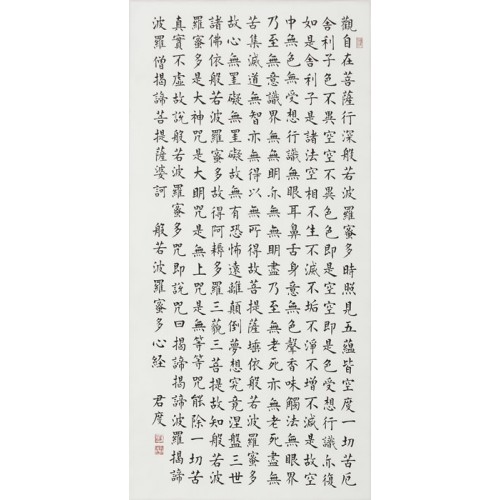 觀自在菩薩行深般若波羅蜜多時照見五蘊皆空度一切苦厄
舍利子色不異空空不異色色即是空空即是色受想行識亦復
如是舍利子是諸法空相不生不滅不垢不淨不增不減是故空
中無色無受想行識無眼耳鼻舌身意無色聲香味觸法無眼界
乃至無意識界無無明亦無無明盡乃至無老死亦無老死盡無
苦集滅道無智亦無得以無所得故菩提薩埵依般若波羅蜜多
故心無罣礙無罣礙故無有恐怖遠離顛倒夢想究竟涅盤三世
諸佛依般若波羅蜜多故得阿耨多羅三藐三菩提故知般若波
羅蜜多是大神咒是大明咒是無上咒是無等等咒能除一切苦
真實不虛故說般若波羅蜜多咒即說咒曰揭諦揭諦波羅揭諦
波羅僧揭諦菩提薩婆訶 般若波羅蜜多心經 君度